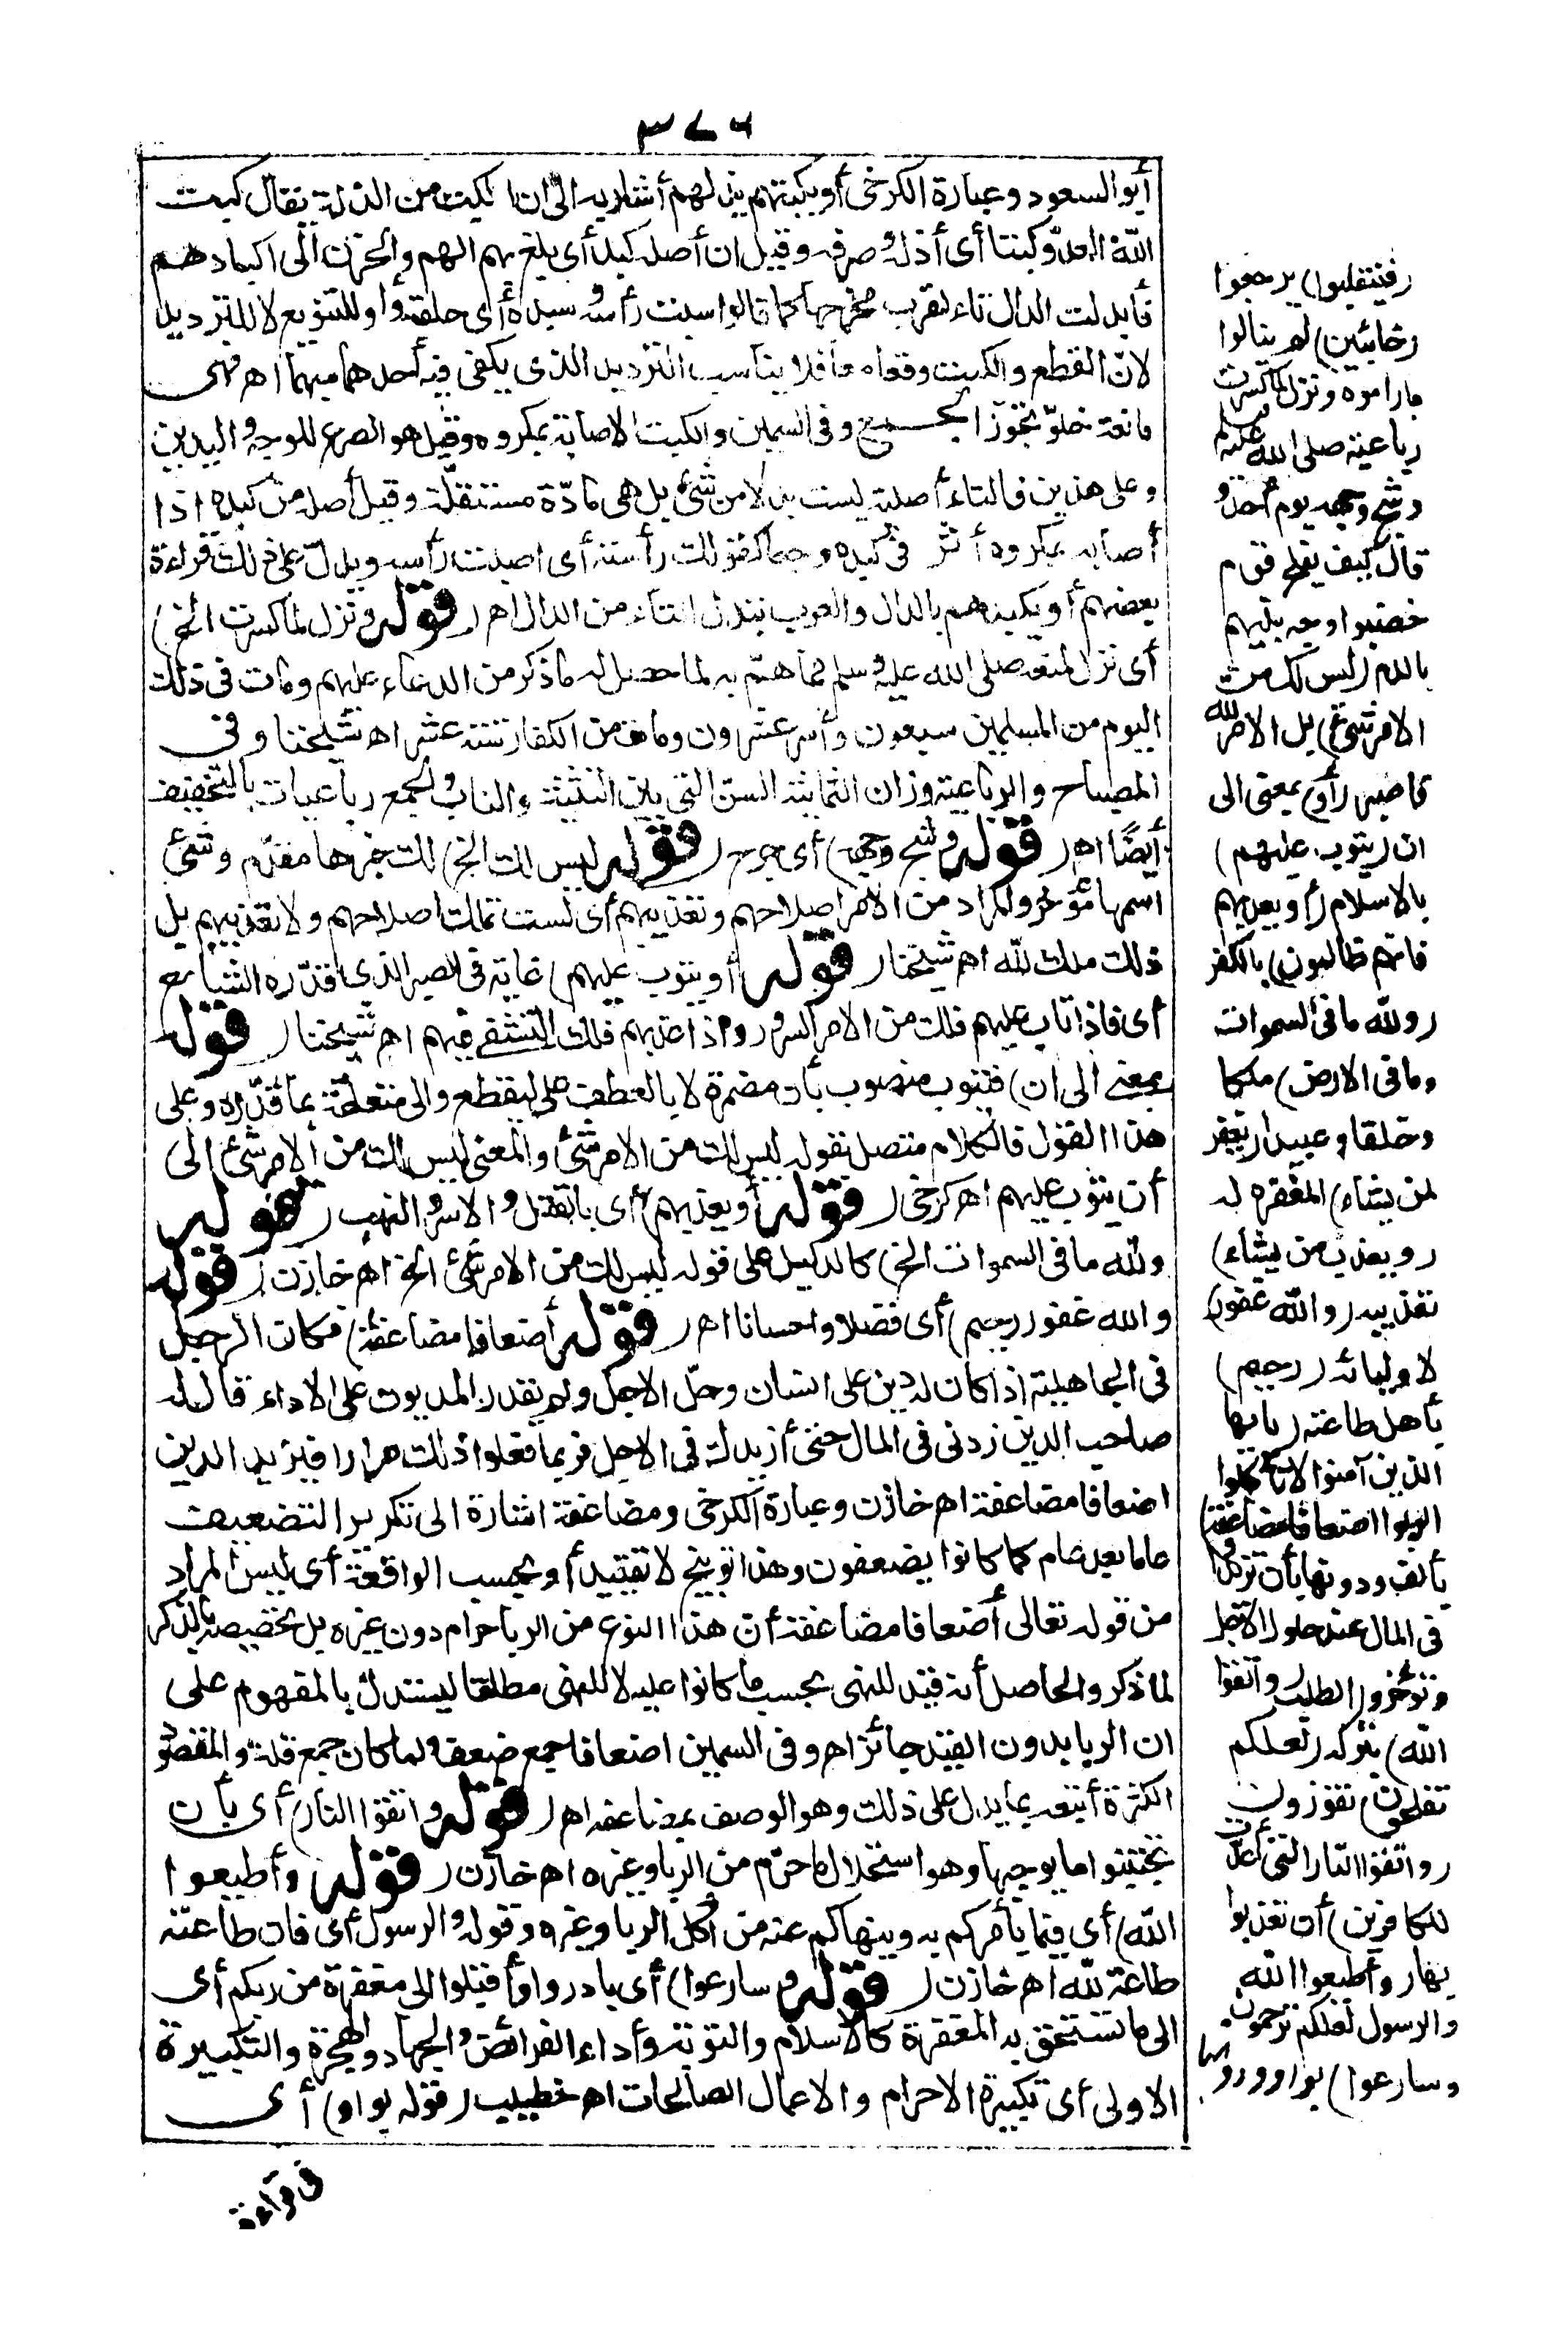 ٣٧٦
أبوالسعود وعبارة الكرخي أو يكبتهم يذلهم أشار به الى ان الكبت من الذلة يقال كبت
الله العدو كبتا أى أذله وصرفه وقيل ان أصله كبد أى بلغ بهم الهم والحزن الى اكبادهم
فأبدلت الدال تاء لقرب مخرجها كما قالوا سبت رأسه وسبده أى حلقه وأو للتنويع لا للترديد
لانّ القطع والكبت وقعا معا فلا يناسب الترديد الذى يكفى فيه أحدهما مبهما اه فهى
مانعة خلوّ تجوّز الجمع وفى السمين والكبت الاصابة بمكروه وقيل هو الصرع للوجه واليدين
وعلى هذين فالتاء أصلية ليست بدلا من شئ بل هى مادّة مستقلّة وقيل أصله من كبده اذا
أصابه بمكروه أثر فى كبده وجعا كقولك رأسته أى اصبت رأسه ويدلّ على ذلك قراءة
بعضهم أو يكبدهم بالدال والعرب تبدل التاء من الدال اه (قوله ونزل لما كسرت الخ)
أى نزل لمنعه صلى الله عليه وسلم مما همّ به لما حصل له ما ذكر من الدعاء عليهم ومات فى ذلك
اليوم من المسلمين سبعون وأسر عشرون ومات من الكفار ستة عشر اه شيخنا وفى
المصباح والرباعية وزان الثمانية السن التى بين الثنية والناب والجمع رباعيات بالتخفيف
أيضًا اه (قوله وشج وجهه) أى جرح (قوله ليس لك الخ) لك خبرها مقدّم وشئ
اسمها مؤخر والمراد من الامر اصلاحهم وتعذيبهم أى لست تملك اصلاحهم ولا تعذيبهم بل
ذلك ملك لله اه شيخنا (قوله أو يتوب عليهم) غاية فى الصبر الذى قدّره الشارح
أى فاذا تاب عليهم فلك من الامر السرور واذا عذبهم فلك التشفى فيهم اه شيخنا (قوله
بمعنى الى ان) فيتوب منصوب بأن مضمرة لا بالعطف على ليقطع والى متعلقة بما قدّره وعلى
هذا القول فالكلام متصل بقوله ليس لك من الامر شئ والمعنى ليس لك من الامر شئ الى
أن يتوب عليهم اه كرخى (قوله أو يعذبهم) أى بالقتل والاسر والنهب (قوله
ولله ما فى السموات الخ) كالدليل على قوله ليس لك من الامر شئ الخ اه خازن (قوله
والله غفور رحيم) أى فضلا واحسانا اه (قوله أضعافا مضاعفة) فكان الرجل
فى الجاهلية اذا كان له دين على انسان وحلّ الاجل ولم يقدر المديون على الاداء قال له
صاحب الدين زدنى فى المال حتى أزيدك فى الاجل فربما فعلوا ذلك مرارا فيزيد الدين
اضعافا مضاعفة اه خازن وعبارة الكرخى ومضاعفة اشارة الى تكرير التضعيف
عاما بعد عام كما كانوا يضعفون وهذا توبيخ لا تقييد أو بحسب الواقعة أى ليس المراد
من قوله تعالى أضعافا مضاعفة أن هذا النوع من الربا حرام دون غيره بل تخصيصه بالذكر
لما ذكر والحاصل أنه قيد للنهى بحسب ما كانوا عليه لا للنهى مطلقا ليستدل بالمفهوم على
ان الربا بدون القيد جائز اه وفى السمين اضعافا جمع ضعف ولما كان جمع قلة والمقصود
الكثرة أتبعه بما يدل على ذلك وهو الوصف بمضاعفة اه (قوله واتقوا النار) أى بأن
تجتنبوا ما يوجبها وهو استحلال ما حرّم من الربا وغيره اه خازن (قوله وأطيعوا
الله) أى فيما يأمركم به وينهاكم عنه من أكل الربا وغيره وقوله والرسول أى فان طاعته
طاعة لله اه خازن (قوله وسارعوا) أى بادروا وأقبلوا الى مغفرة من ربكم أى
الى ما تستحق به المغفرة كالاسلام والتوبة وأداء الفرائض والجهاد والهجرة والتكبيرة
الاولى أى تكبيرة الاحرام والاعمال الصالحات اه خطيب (قوله بواو) أى
(فينقلبوا) يرجعوا
(خائبين) لم ينالوا
ما راموه ونزل لما كسرت
رباعيته صلى الله عليه وسلم
وشج وجهه يوم أحد و
قال كيف يفلح قوم
خضبوا وجه نبيهم
بالدم (ليس لك من
الامر شئ) بل الامر لله
فاصبر (أو) بمعنى الى
ان (يتوب عليهم)
بالاسلام (أو يعذبهم
فانهم ظالمون) بالكفر
(ولله ما فى السموات
وما فى الارض) ملكا
وخلقا وعبيدا (يغفر
لمن يشاء) المغفرة له
(ويعذب من يشاء)
تعذيبه (والله غفور)
لاوليائه (رحيم)
بأهل طاعته (يا أيها
الذين آمنوا لا تأكلوا
الربوا اضعافا مضاعفة)
بألف ودونها بأن تزيدوا
فى المال عند حلول الاجل
وتؤخروا الطلب (واتقوا
الله) بتركه (لعلكم
تفلحون) تفوزون
(واتقوا النار التى أعدّت
للكافرين) أن تعذبوا
بها (وأطيعوا الله
والرسول لعلكم ترحمون
وسارعوا) بواو ودونها
فى قراءة